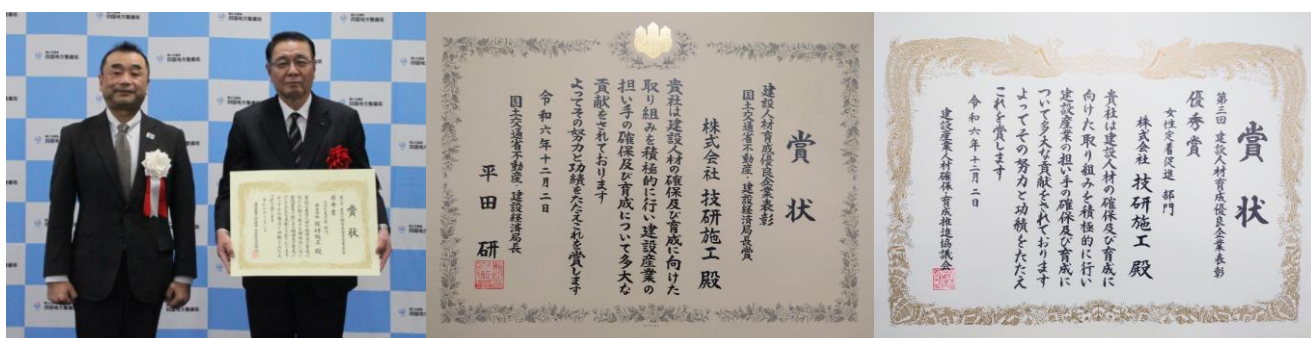 国土交通省
四国地方整備局
賞状
株式会社 技研施工 殿
賞状
建設人材育成優良企業表彰
国土交通省不動産・建設経済局長賞
株式会社 技研施工 殿
貴社は建設人材の確保及び育成に向けた
取り組みを積極的に行い建設産業の
担い手の確保及び育成について多大な
貢献をされております
よってその努力と功績をたたえこれを賞します
令和六年十二月二日
国土交通省不動産・建設経済局長
平田 研
賞状
第三回 建設人材育成優良企業表彰
優秀賞
女性定着促進 部門
株式会社 技研施工 殿
貴社は建設人材の確保及び育成に
向けた取り組みを積極的に行い
建設産業の担い手の確保及び育成に
ついて多大な貢献をされております
よってその努力と功績をたたえ
これを賞します
令和六年十二月二日
建設産業人材確保・育成推進協議会